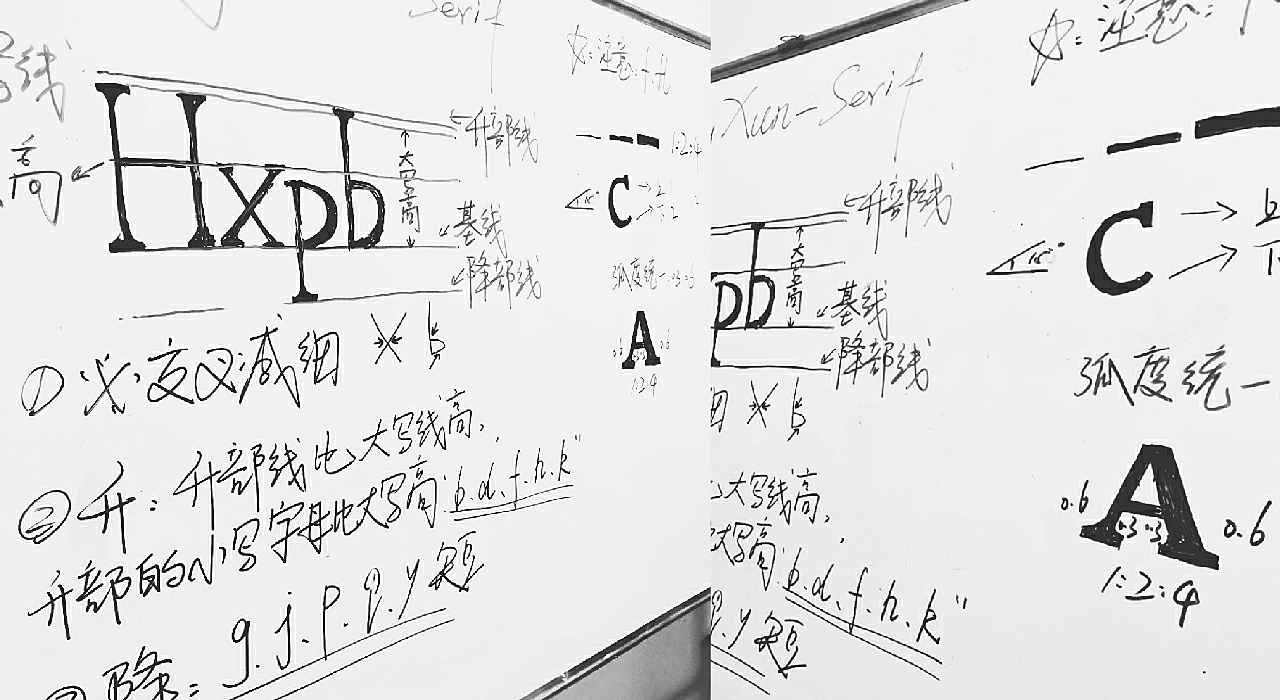 Serif
线
高
Hxpb
大写高
升部线
基线
降部线
☆:注意:f.H
1:2:4
C
弧度统一 0.3 0.6
A
1:2:4
①"x"交叉减细
②升:升部线比大写线高,
升部的小写字母比大写高"b.d.f.h.k"
降:g.j.p.q.y短
Xun-Serif
☆:注意:
升部线
pb
大写高
基线
降部线
C
上
下
弧度统一
细
大写线高,
大写高"b.d.f.h.k"
q.y短
0.6 A 0.6
0.3 0.3
1:2:4